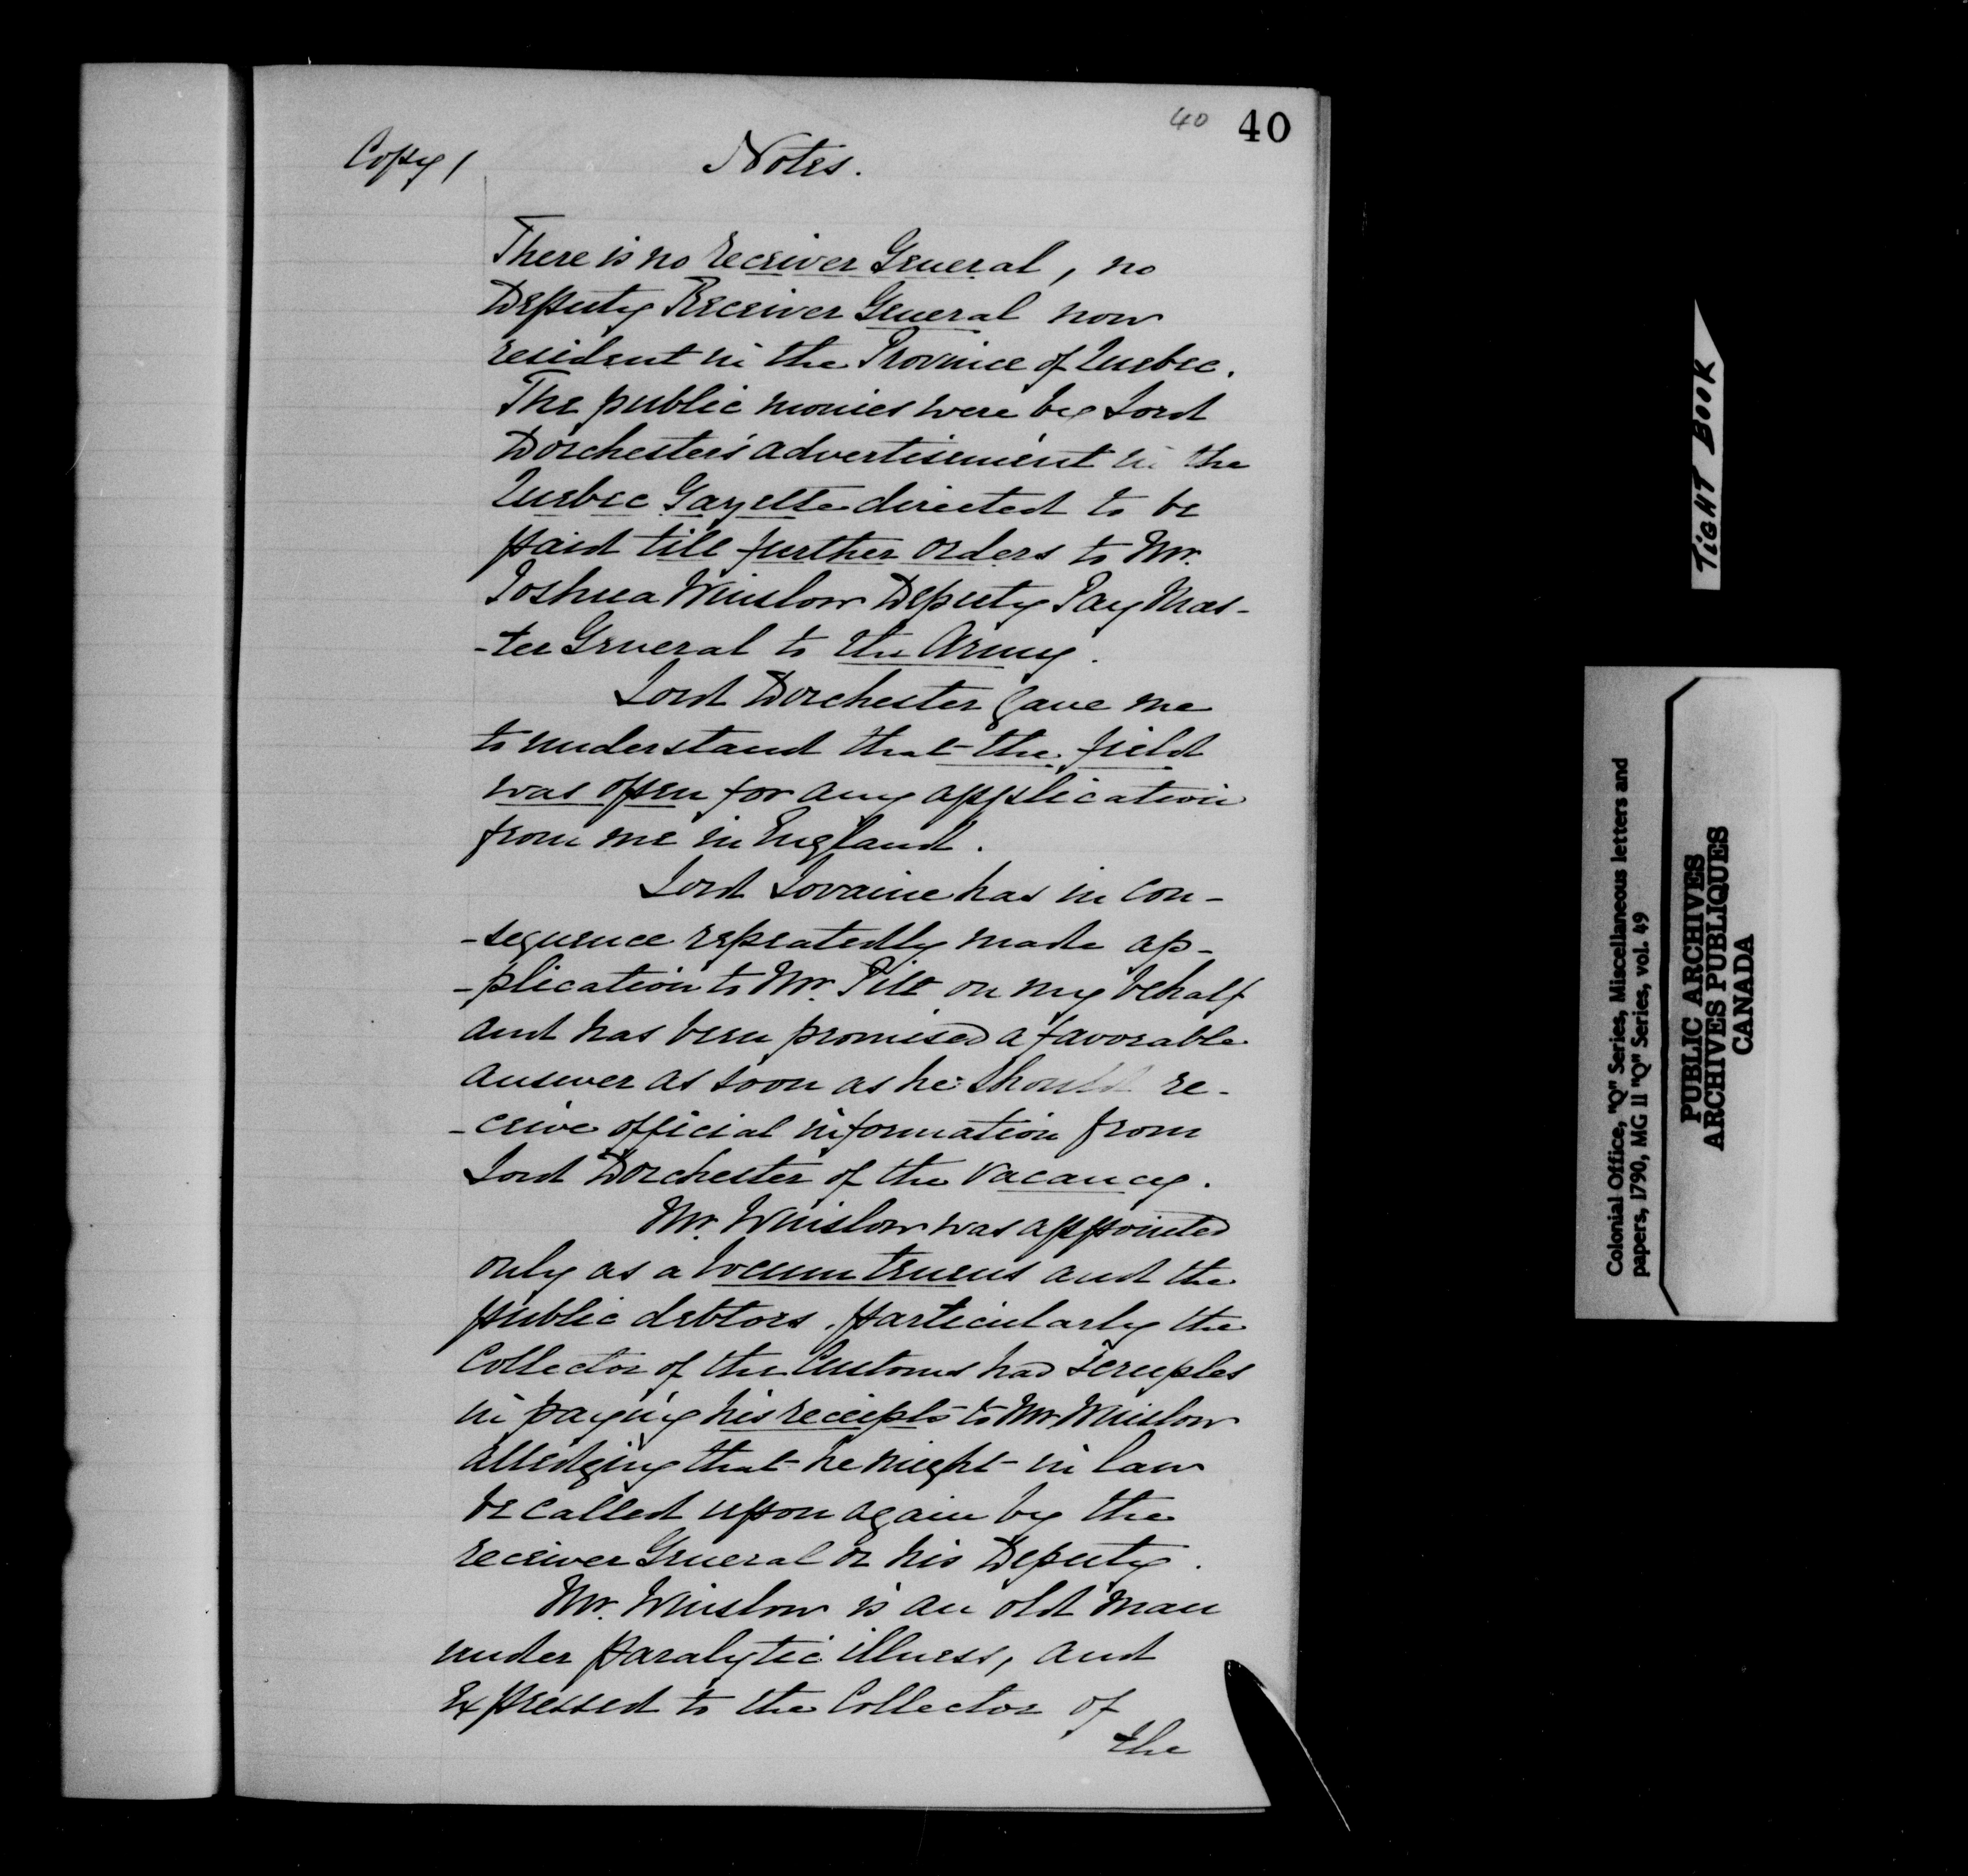 40 40
Copy / Notes.
There is no receiver General, no
Deputy Receiver General now
resident in the Province of Quebec.
The public monies were by Lord
Dorchester's advertisement in the
Quebec Gazette directed to be
paid till further orders to Mr.
Joshua Winslow Deputy Pay Mas-
-ter General to the Army.
Lord Dorchester gave me
to understand that the field
was open for any application
from me in England.
Lord Lovaine has in con-
-sequence repeatedly made ap-
-plication to Mr. Pitt on my behalf
and has been promised a favorable
answer as soon as he should re-
-ceive official information from
Lord Dorchester of the vacancy.
Mr. Winslow was appointed
only as a locum tenens and the
public debtors, particularly the
Collector of the Customs had scruples
in paying his receipts to Mr Winslow
alledging that he might in law
be called upon again by the
receiver General or his Deputy.
Mr. Winslow is an old man
under paralytic illness, and
expressed to the Collector of
the
TIGHT BOOK
Colonial Office, "Q" Series, Miscellaneous letters and
papers, 1790, MG 11 "Q" Series, vol. 49
PUBLIC ARCHIVES
ARCHIVES PUBLIQUES
CANADA